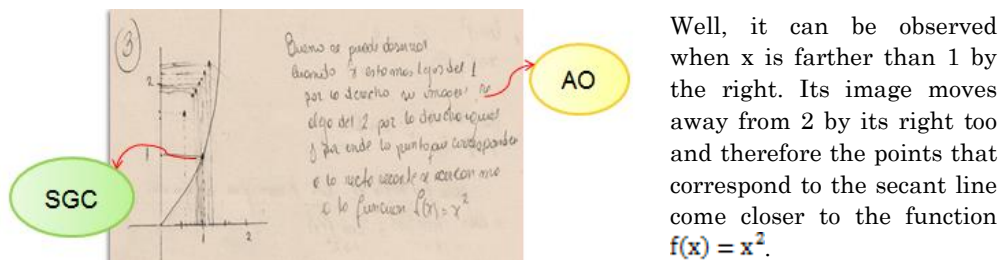 3
Bueno se puede observar
cuando x estamos lejos del 1
por la derecha su imagen se
aleja del 2 por la derecha igual
y por ende los puntos que corresponden
a la recta secante se acercan mas
a la funcion f(x) = x²
2
1
1
2
AO
SGC
Well, it can be observed
when x is farther than 1 by
the right. Its image moves
away from 2 by its right too
and therefore the points that
correspond to the secant line
come closer to the function
f(x) = x².